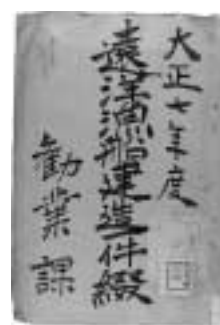 大正七年度
遠洋漁船建造一件綴
勧業課